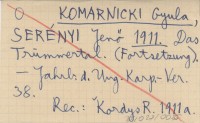 O KOMARNICKI Gyula,
SERÉNYI Jenő 1911. Das
Trümmertal. (Fortsetzung).
— Jahrb. d. Ung. Karp.-Ver.
38.
Rec.: Kordys R. 1911a.